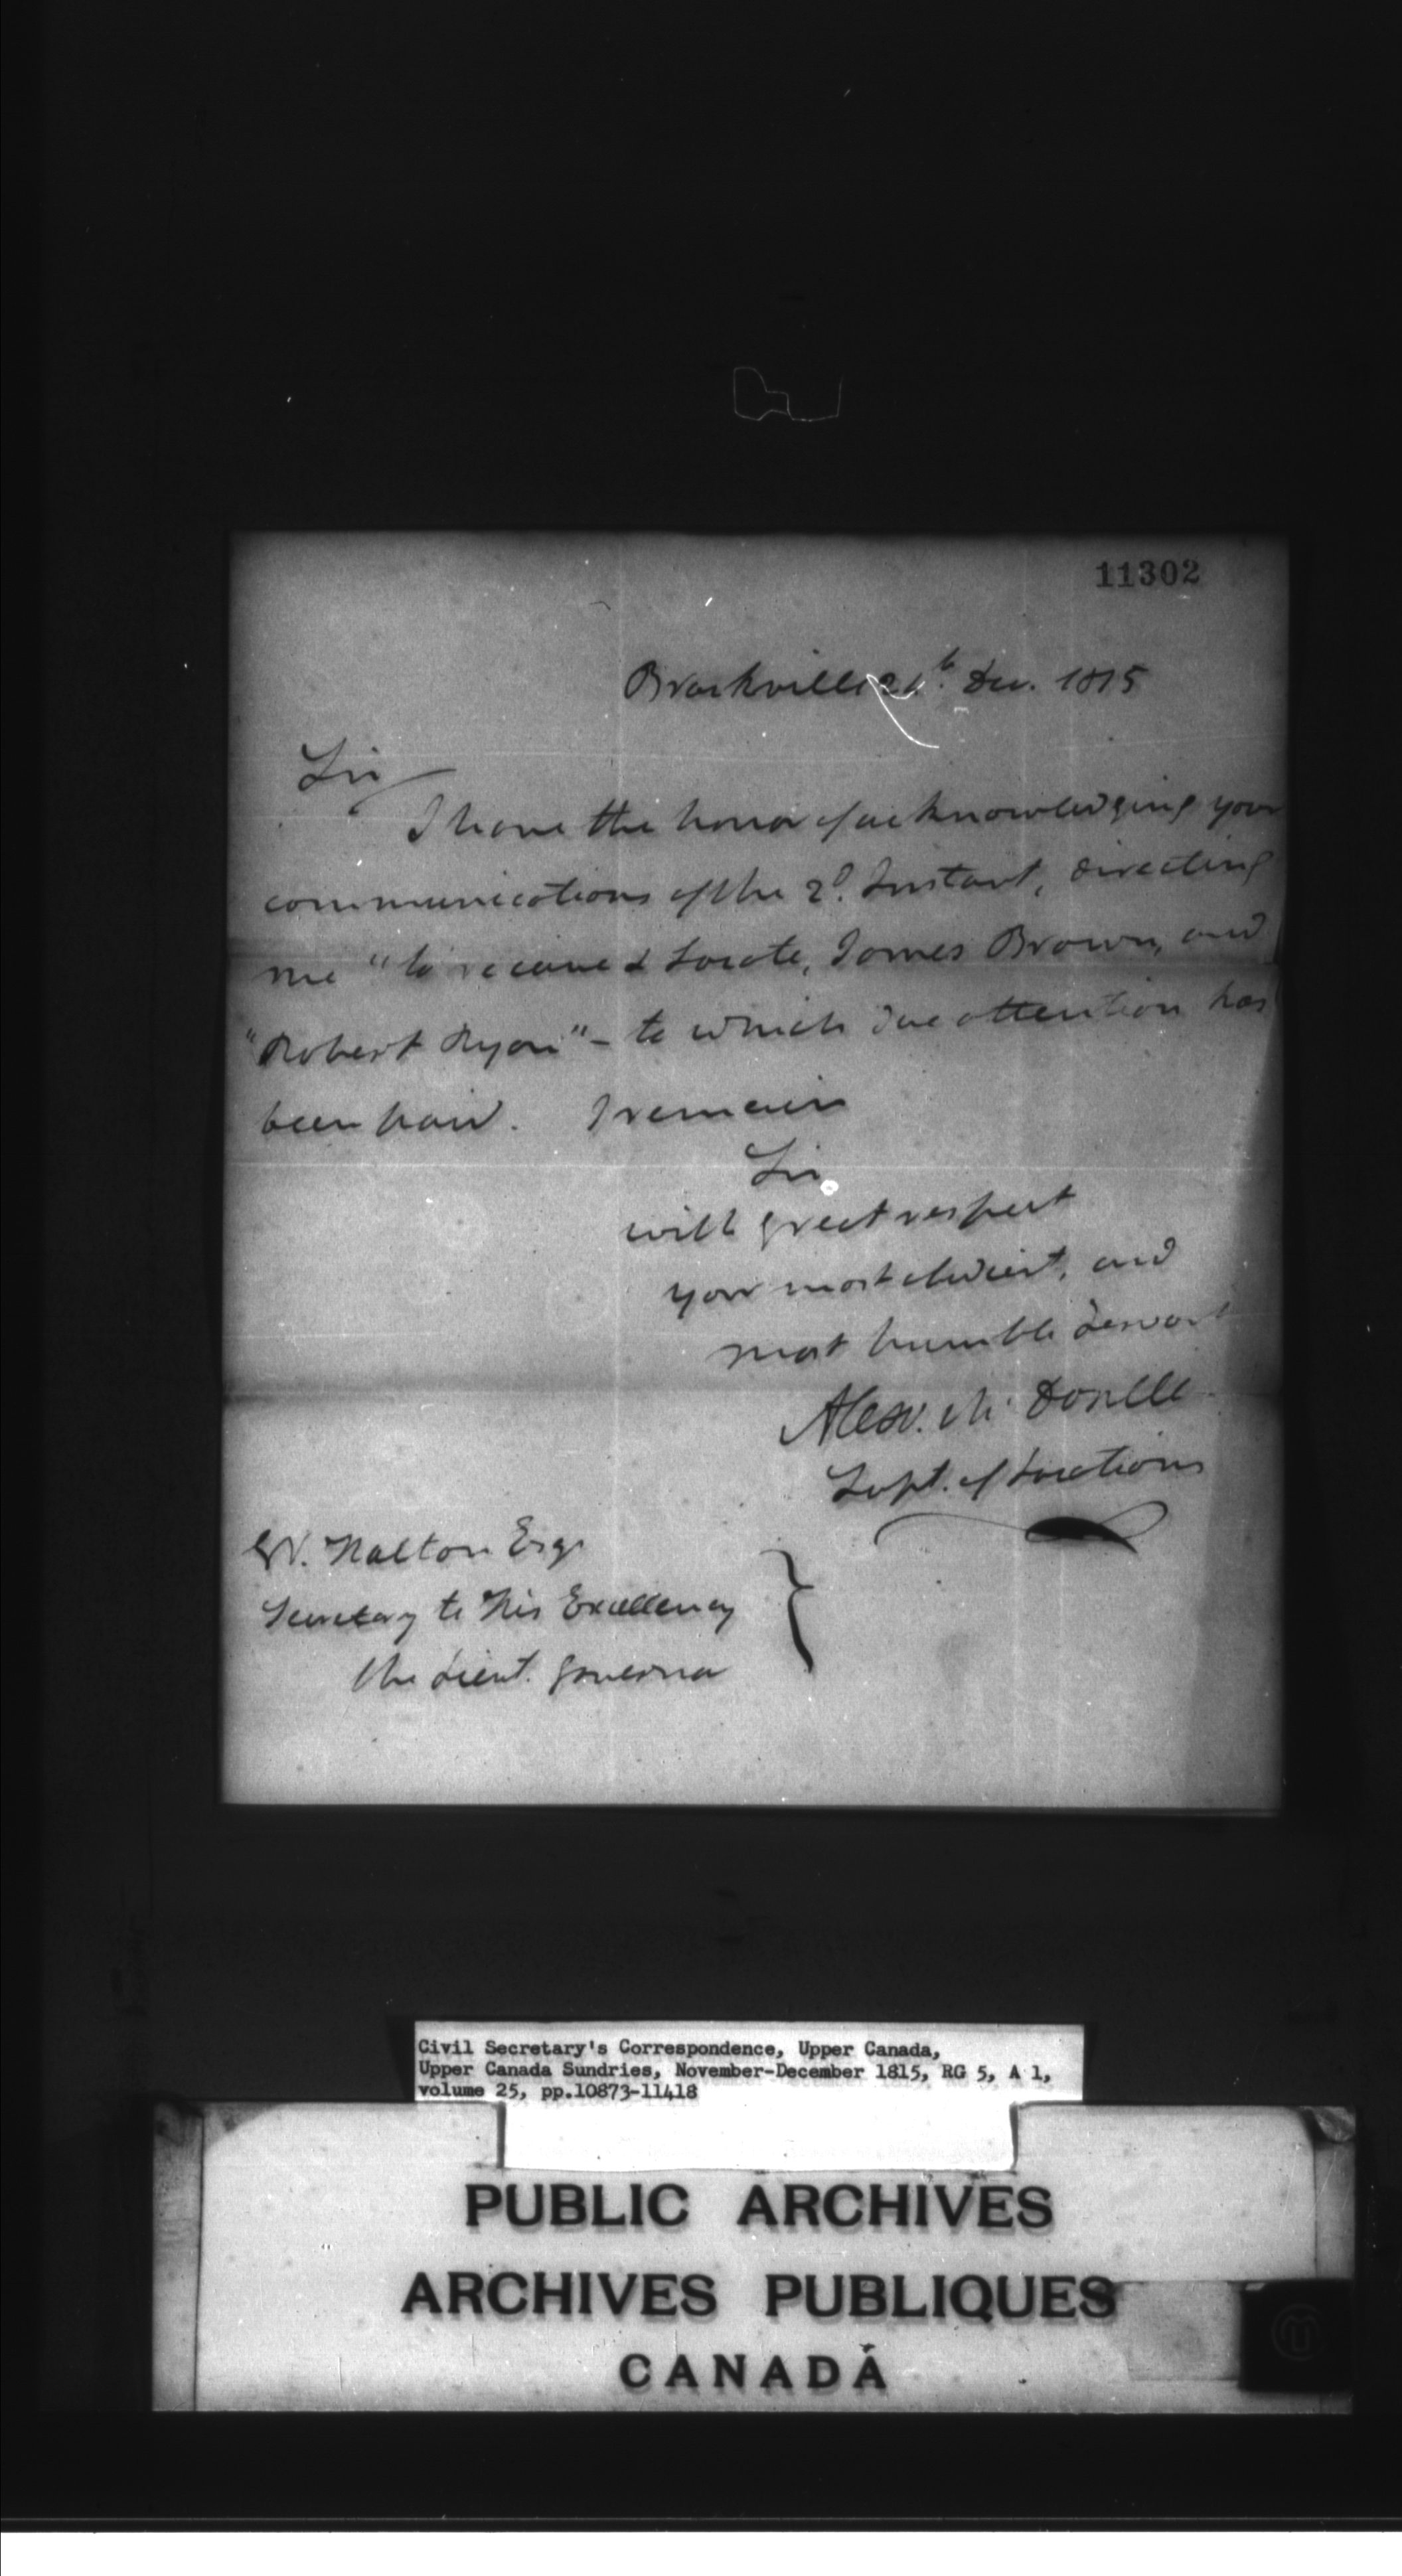 11302
Brockville 21.t Dec. 1815
Sir
I have the honor of acknowledging your
communications of the 2d. Instant, directing
me "to receive & Locate, James Brown, and
"Robert Ryan" – to which due attention has
been paid. I remain
Sir
with great respect
your most obedient, and
most humble Servant
Alexr. Mc Donell
Supt. of Locations
W. Halton Esqr
Secretary to His Excellency
the Lieut. Governor
Civil Secretary's Correspondence, Upper Canada,
Upper Canada Sundries, November-December 1815, RG 5, A 1,
volume 25, pp.10873-11418
PUBLIC ARCHIVES
ARCHIVES PUBLIQUES
CANADA